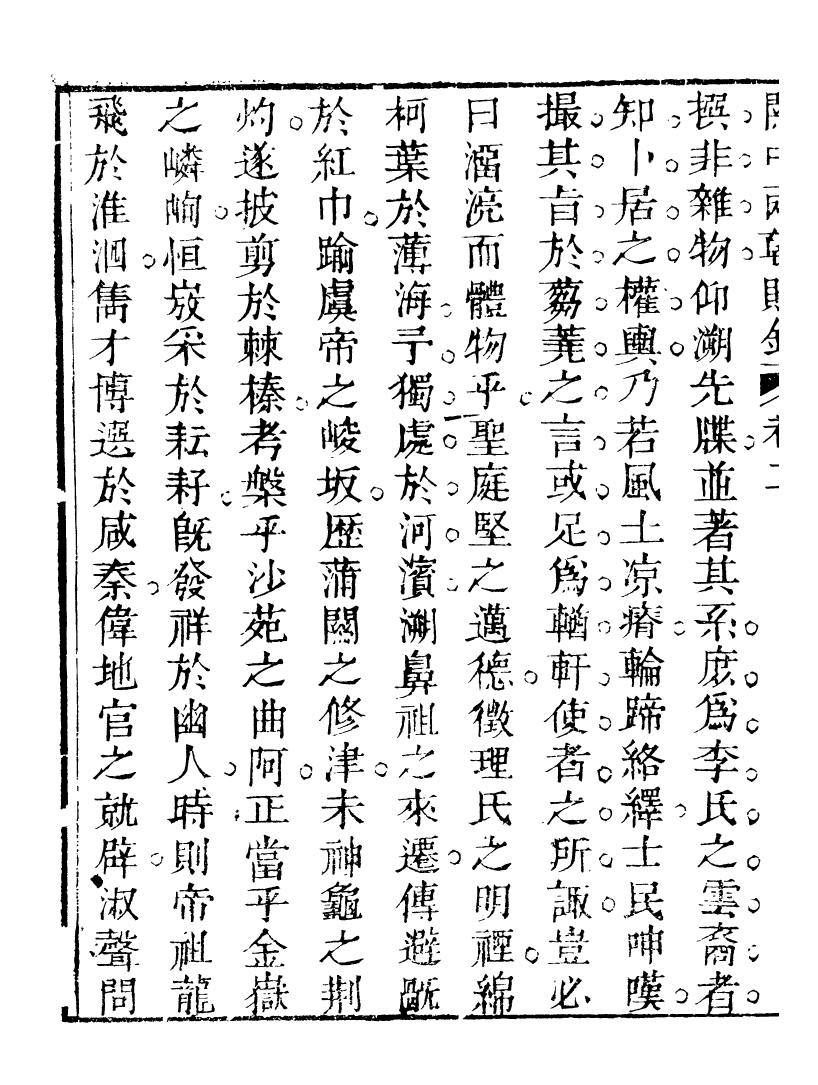 關中兩朝賦鈔　卷
撰非雜物仰溯先牒並著其系庶爲李氏之雲裔者
知卜居之權輿乃若風土凉瘠輪蹄絡繹士民呻嘆
撮其旨於蒭蕘之言或足爲輶軒使者之所諏豈必
曰溜湸而體物乎聖庭堅之邁德徵理氏之明禋綿
柯葉於薄海予獨處於河濱溯鼻祖之來遷傳避
於紅巾踰虞帝之崚坂歷蒲關之修津未神龜之荆
灼遂披剪於棘榛考槃乎沙苑之曲阿正當乎金嶽
之嶙峋恒采於耘耔旣發祥於幽人時則帝祖龍
飛於淮泗雋才博選於咸秦偉地官之就辟淑聲問